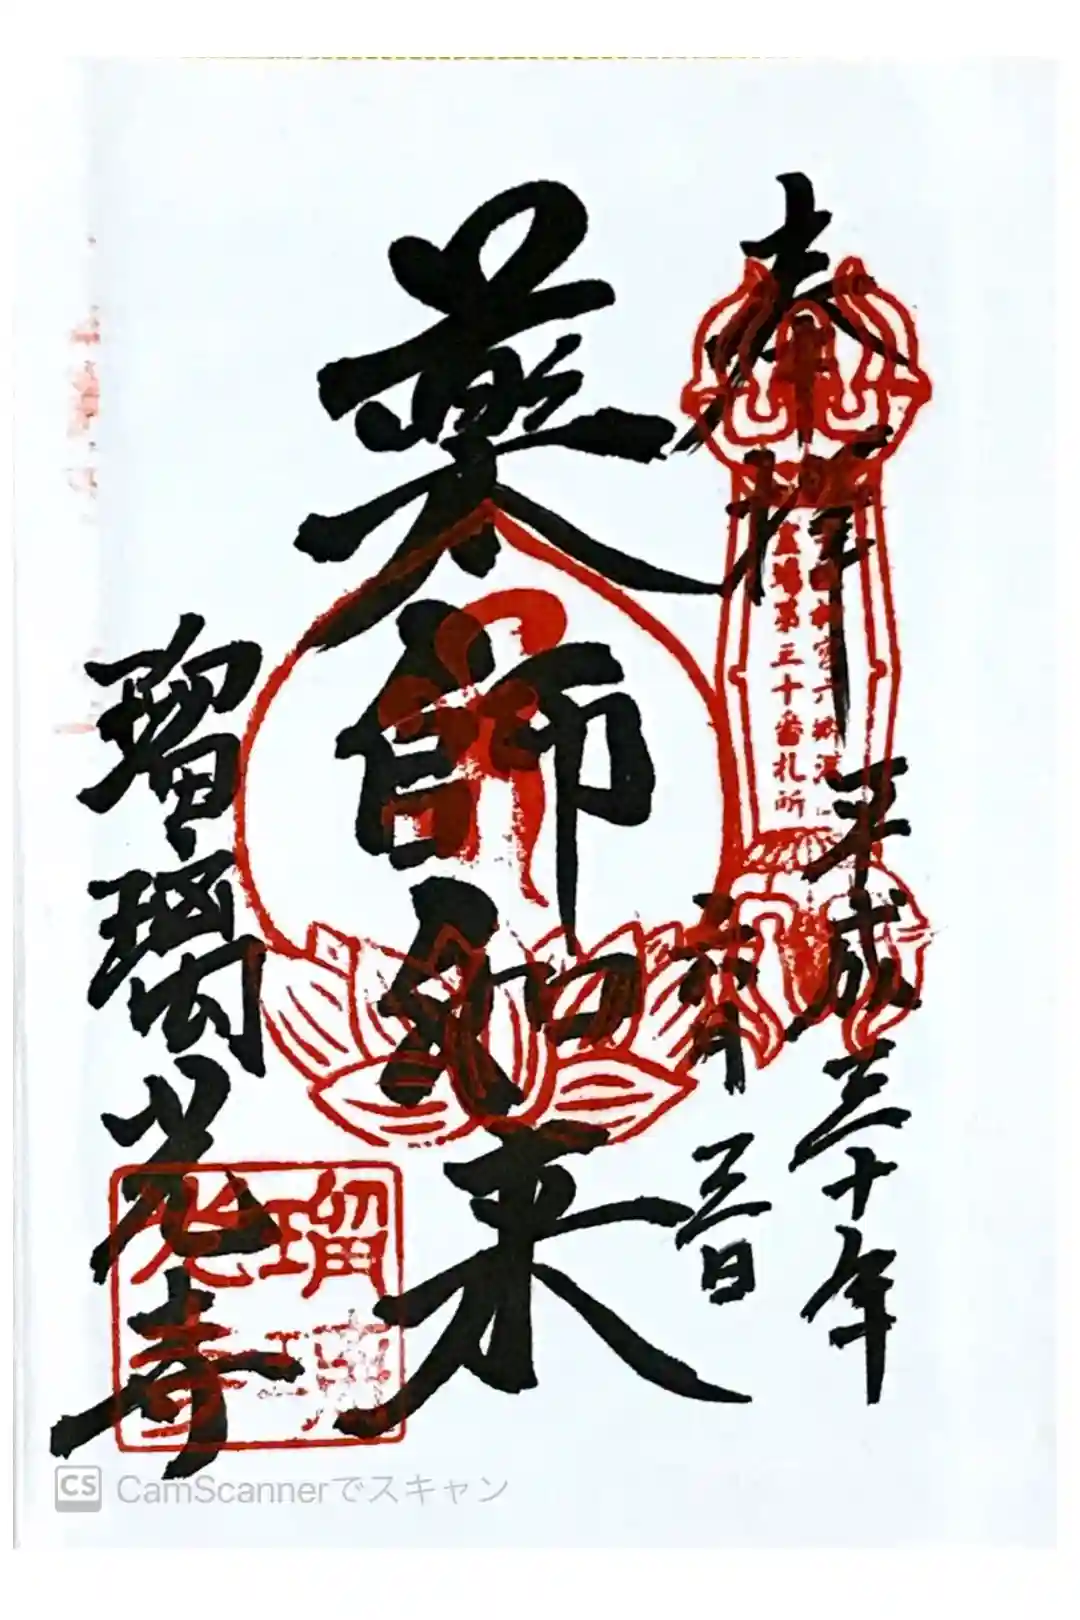 奉拝
霊場第三十番札所
平成三十年
六月三日
薬師如来
瑠璃光寺
瑠璃光寺
CS CamScannerでスキャン